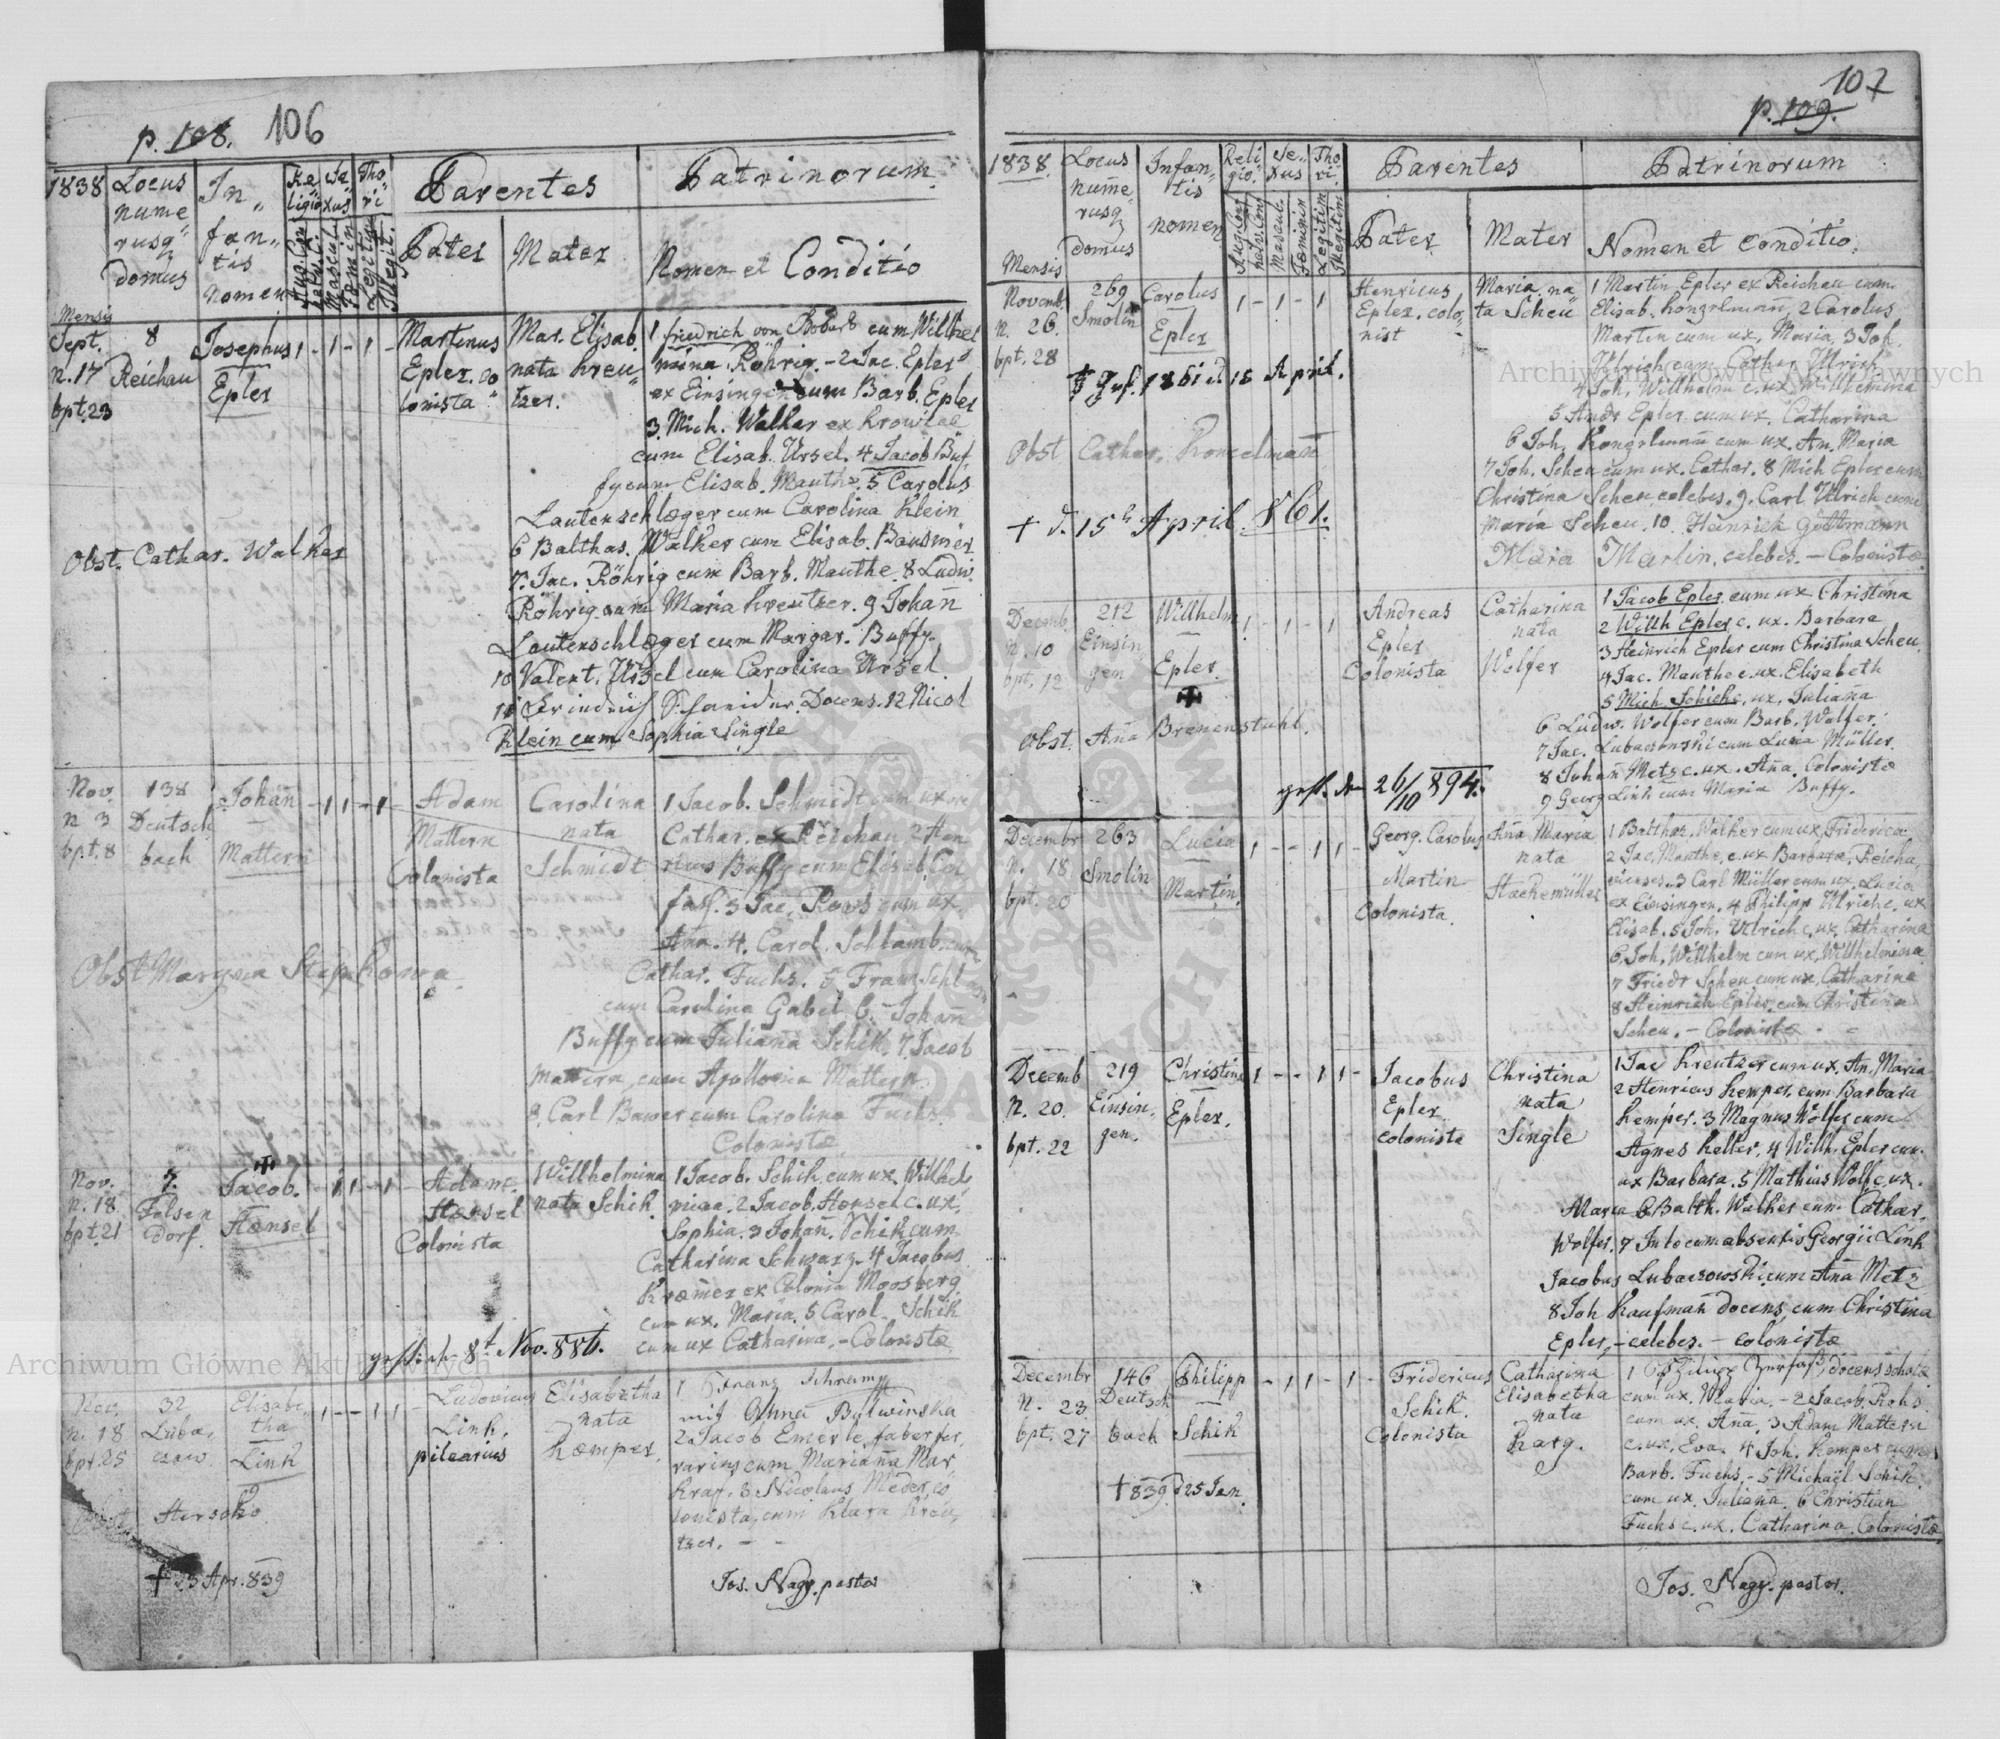 p. 108. 106
1838 Locus numerusq domus Infantis nomen Religio Sexus Thori Parentes Patrinorum
Mensis Pater Mater Nomen et Conditio
Sept. 8 Josephus 1 - 1 - 1 - Martinus Mar. Elisab. 1 friedrich von cum Wilhel
n. 17 Reichau Epler Epler. co nata Kreu mina Röhrig. - 2 Jac. Epler
bpt. 23 lonista tzer. ex Einsingen cum Barb. Epler
3. Mich. Walker ex Krowicee
cum Elisab. Ursel. 4 Jacob Buf
fy cum Elisab. Manthe. 5 Carolus
Lautenschlæger cum Carolina Klein
6 Balthas. Walker cum Elisab. Bausmer
Obst. Cathar. Walker
7. Jac. Röhrig cum Barb. Manthe. 8 Ludw.
Röhrig cum Maria Kreutzer. 9 Johan̄
Lautenschlæger cum Margar. Buffy.
10 Valent. Ursel cum Carolina Ursel.
11 Docens. 12 Nicol
Klein cum Sophia Single
Nov. 138 Johan̄ - 1 1 - 1 - Adam Carolina 1 Jacob. Schmidt cum uxore
n 3 Deutsch Mattern nata Cathar. ex Reichau 2 Hen
bpt. 8 bach Mattern Colonista Schmidt ricus Buffy cum Elisab. Col
3 Jac. Roos cum ux.
Ana. 4. Carol. Schlamb cum
Obst Maryna
Cathar. Fuchs. 5 Franz Schlam
cum Carolina Gabel 6. Johan̄
Buffy cum Juliana Schik. 7. Jacob
Mattern, cum Apollonia Mattern.
8. Carl Bawer cum Carolina Fuchs.
Colonistæ
Nov. 7. Jacob. - 1 1 - 1 - Adam. Willhelmina 1 Jacob. Schik. cum ux. Willhel
n. 18. Felsen Hænsel Hænsel nata Schik. mina. 2 Jacob. Hænsel c. ux.
bpt. 21 dorf. Colonista Sophia. 3 Johan̄. Schik cum
Catharina Schwarz. 4 Jacobus
Kræmer ex Colonia Moosberg.
cum ux. Maria. 5 Carol. Schik
gest. d. 8t Nov. 886. cum ux Catharina. - Colonistæ
Nov. 32 Elisabe 1 - - 1 1 - Ludovicus Elisabetha 1 Franz Schramp
n. 18 Luba, tha Link. nata mit Anna Bulwinska
bpt. 25 czow. Link pilearius Kæmper. 2 Jacob Emerle, faber fer,
rarius cum Marian̄a Mar
kraf. 3 Nicolaus Meder, co
Obst Hersoko lonista, cum Klara Kreu,
tzer. - -
† 23 Apr. 839 Jos. Nagy. pastor
107
p. 109.
1838. Locus numerusq domus Infantis nomen Religio. Sexus Thori. Parentes Patrinorum
Mensis Pater Mater Nomen et Conditio.
Novemb. 269 Carolus 1 - 1 - 1 Henricus Maria, na 1 Martin Epler ex Reichau cum
n. 26. Smolin Epler Epler. colo, ta Scheu Elisab. Konzelman̄, 2 Carolus
bpt. 28 nist Martin cum ux. Maria. 3 Joh.
Ulrich cum Cathar Ulrich
† 1861 d 15 April. 4 Joh. Willhelm c. ux Willhelmina
5 Andr Epler cum ux. Catharina
Obst Cathar. Konzelman̄ 6 Joh. Konzelman̄ cum ux. An. Maria
7 Joh. Scheu cum ux. Cathar. 8 Mich Epler cum
Christina Scheu celebes. 9. Carl Ulrich cum
† d. 15t April 861. Maria Scheu. 10. Heinrich Göttmann
Maria Martin. celebes. - Colonistæ
Decemb. 212 Willhelm 1 - 1 - 1 Andreas Catharina 1 Jacob Epler. cum ux Christina
n. 10 Einsin- Epler. Epler nata 2 Willh Epler c. ux. Barbara
bpt. 12 gen Colonista Wolfer 3 Heinrich Epler cum Christina Scheu.
4 Jac. Manthe c. ux. Elisabeth
5 Mich. Schick c. ux. Julian̄a
Obst. An̄a Bremenstuhl. 6 Ludw. Wolfer cum Barb. Wolfer.
7 Jac. Lubaczowski cum Luzia Müller.
8 Johan̄ Metz c. ux. An̄a. Colonistæ
gest. den 26/10 894. 9 Georg Link cum Maria Buffy.
Decembr 263 Lucia 1 - - 1 1 - Georg. Carolus An̄a Maria 1 Balthas. Walker cum ux Friderica
n. 18 Smolin Martin. Martin nata 2 Jac. Manthe, c. ux Barbara, Reicha,
bpt. 20 Colonista Stachemüller vienses. 3 Carl Müller cum ux. Lucia
ex Einsingen, 4 Philipp Ulrich c. ux
Elisab. 5 Joh. Ulrich c. ux. Catharina
6. Joh. Willhelm cum ux. Willhelmina
7 Friedr Scheu cum ux. Catharina
8 Heinrich Epler cum Christina
Scheu. - Colonistæ
Decemb 219 Christina 1 - - 1 1 - Jacobus Christina 1 Jac Kreutzer cum ux. An. Maria
n. 20. Einsin- Epler. Epler nata 2 Henricus Kemper. cum Barbara
bpt. 22 gen. colonista Single Kemper. 3 Magnus Wolfer cum
Agnes Keller. 4 Willh. Epler cum
ux Barbara. 5 Mathias Wolf c. ux.
Maria 6 Balth. Walker cum Cathar.
Wolfer. 7 In locum absentis Georgii Link
Jacobus Lubaczowski cum An̄a Metz
8. Joh Kaufman̄ docens cum Christina
Epler, - celebes. - colonistæ
Decembr 146 Philipp - 1 1 - 1 - Fridericus Catharina 1 docens scholæ
n. 23. Deutsch Schik. Elisabetha cum ux. Maria. - 2 Jacob. Rohs
bpt. 27 bach Schik Colonista nata cum ux. An̄a. 3 Adam Mattern
Karg. c. ux. Eva. 4 Joh. Kemper cum
Barb. Fuchs. - 5 Michaël Schik
† 839 d 25 Jan. cum ux. Julian̄a. 6 Christian
Fuchs c. ux. Catharina. Colonistæ
Jos. Nagy. pastor.
Archiwum Główne Akt Dawnych
Archiwum Główne Akt Dawnych